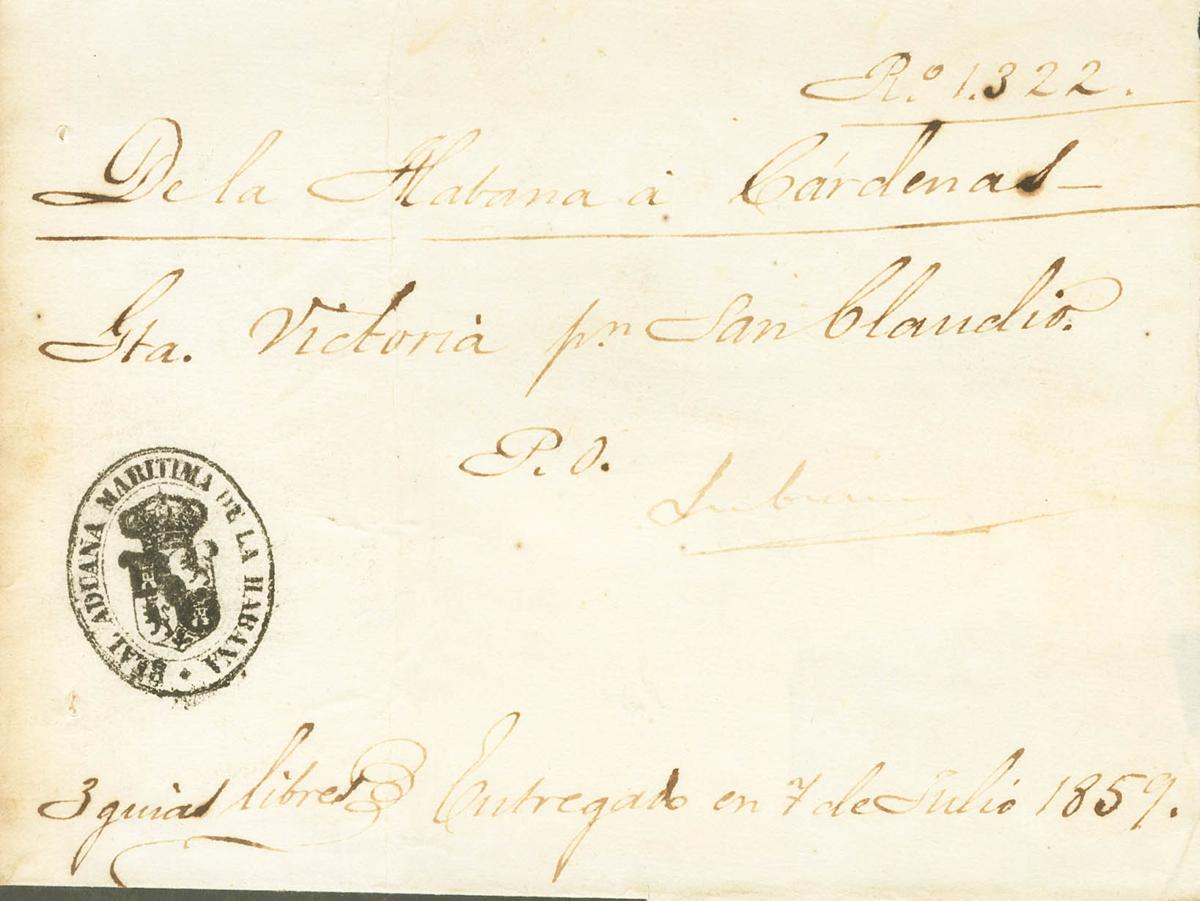 R.º 1.322.
De la Habana à Cárdenas —
Gta. Victoria p.n San Claudio.
P. O.
REAL ADUANA MARITIMA DE LA HABANA
3 guias libres Entregado en 7 de Julio 1859.